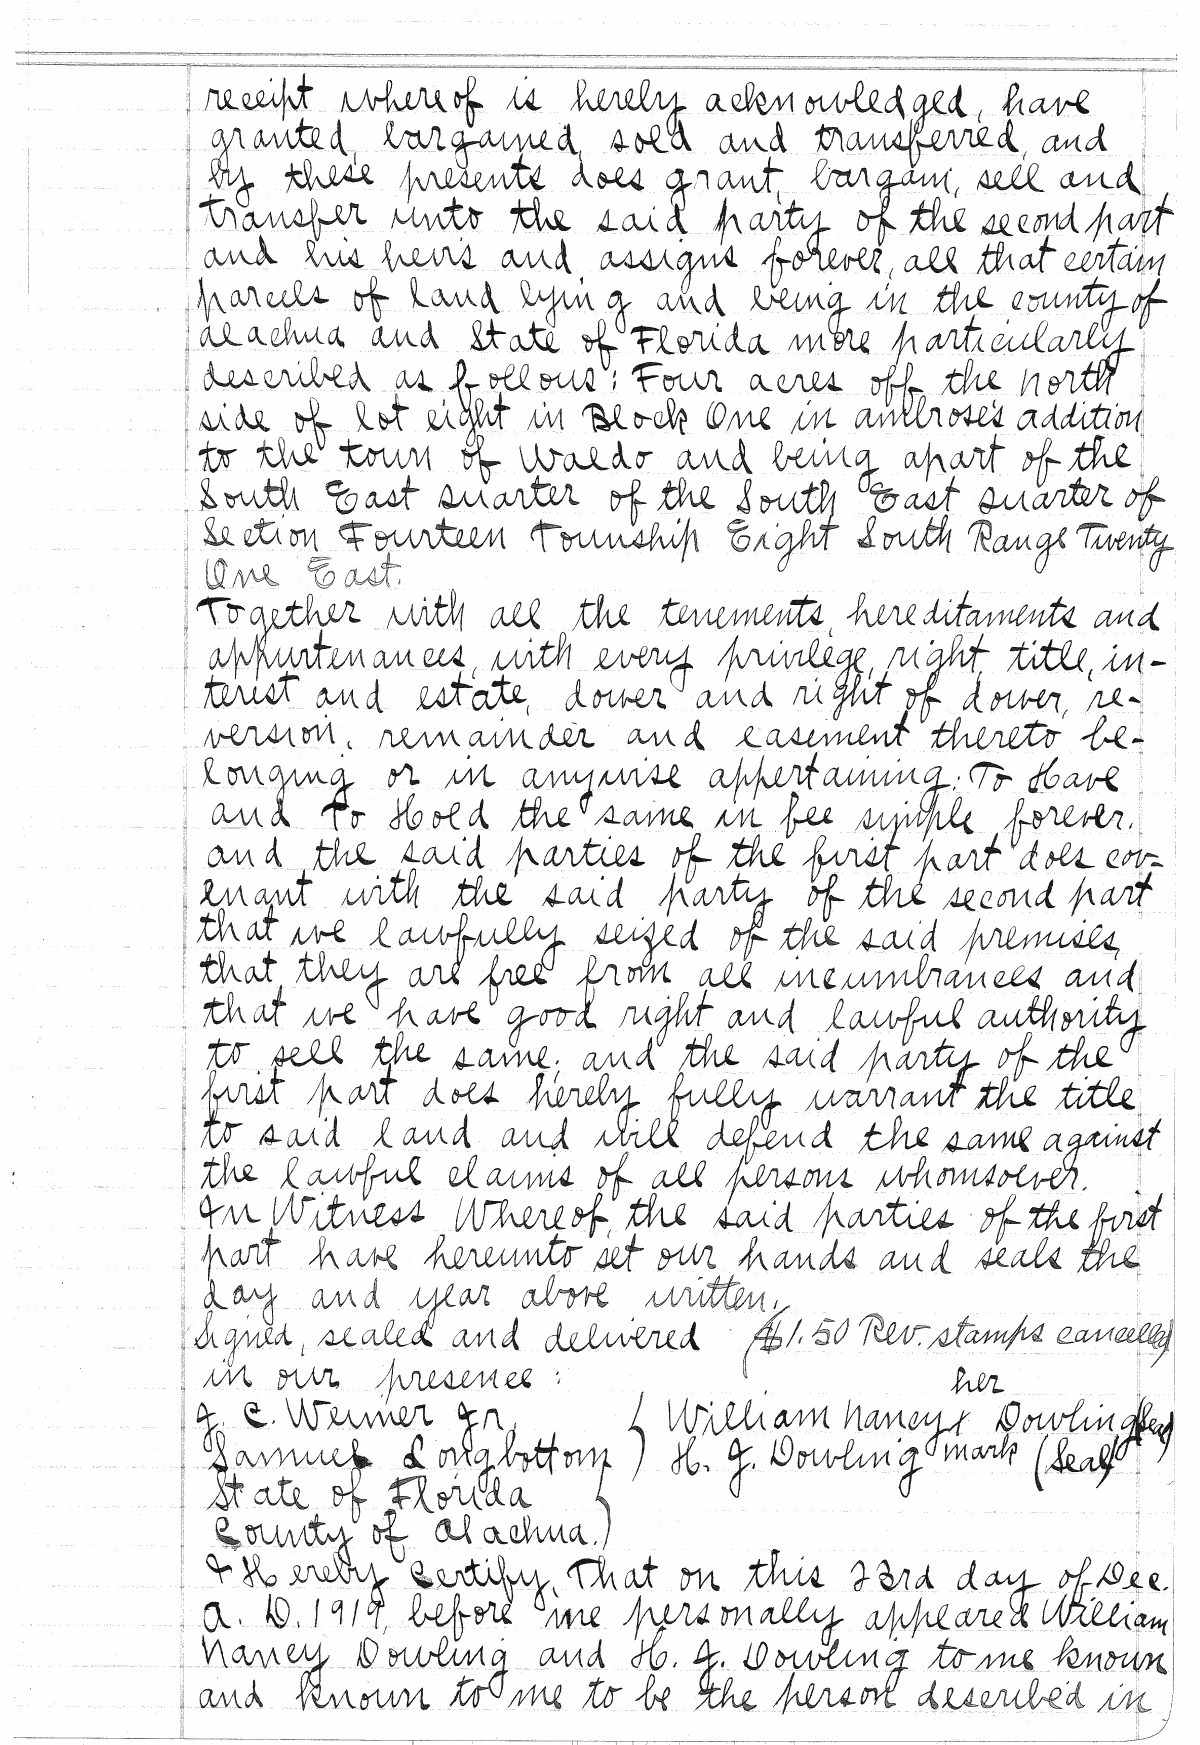 receipt whereof is hereby acknowledged, have
granted, bargained, sold and transferred, and
by these presents does grant, bargain, sell and
transfer unto the said party of the second part
and his heirs and assigns forever, all that certain
parcels of land lying and being in the county of
Alachua and State of Florida more particularly
described as follows: Four acres off the North
side of lot eight in Block One in Ambrose's addition
to the town of Waldo and being apart of the
South East quarter of the South East quarter of
Section Fourteen Township Eight South Range Twenty
One East.
Together with all the tenements, hereditaments and
appurtenances, with every privilege, right, title, in-
terest and estate, dower and right of dower, re-
version, remainder and easement thereto be-
longing or in anywise appertaining: To Have
and To Hold the same in fee simple forever.
and the said parties of the first part does cov-
enant with the said party of the second part
that we lawfully seized of the said premises,
that they are free from all incumbrances and
that we have good right and lawful authority
to sell the same; and the said party of the
first part does hereby fully warrant the title
to said land and will defend the same against
the lawful claims of all persons whomsoever.
In Witness Whereof, the said parties of the first
part have hereunto set our hands and seals the
day and year above written.
Signed, sealed and delivered ($1.50 Rev. stamps cancelled)
in our presence: her
J. C. Weimer Jr. ( William Nancy x Dowling (Seal)
Samuel Longbottom ) H. J. Dowling mark (Seal)
State of Florida )
County of Alachua. )
I Hereby Certify, That on this 23rd day of Dec.
A. D. 1919, before me personally appeared William
Nancy Dowling and H. J. Dowling to me known
and known to me to be the person described in